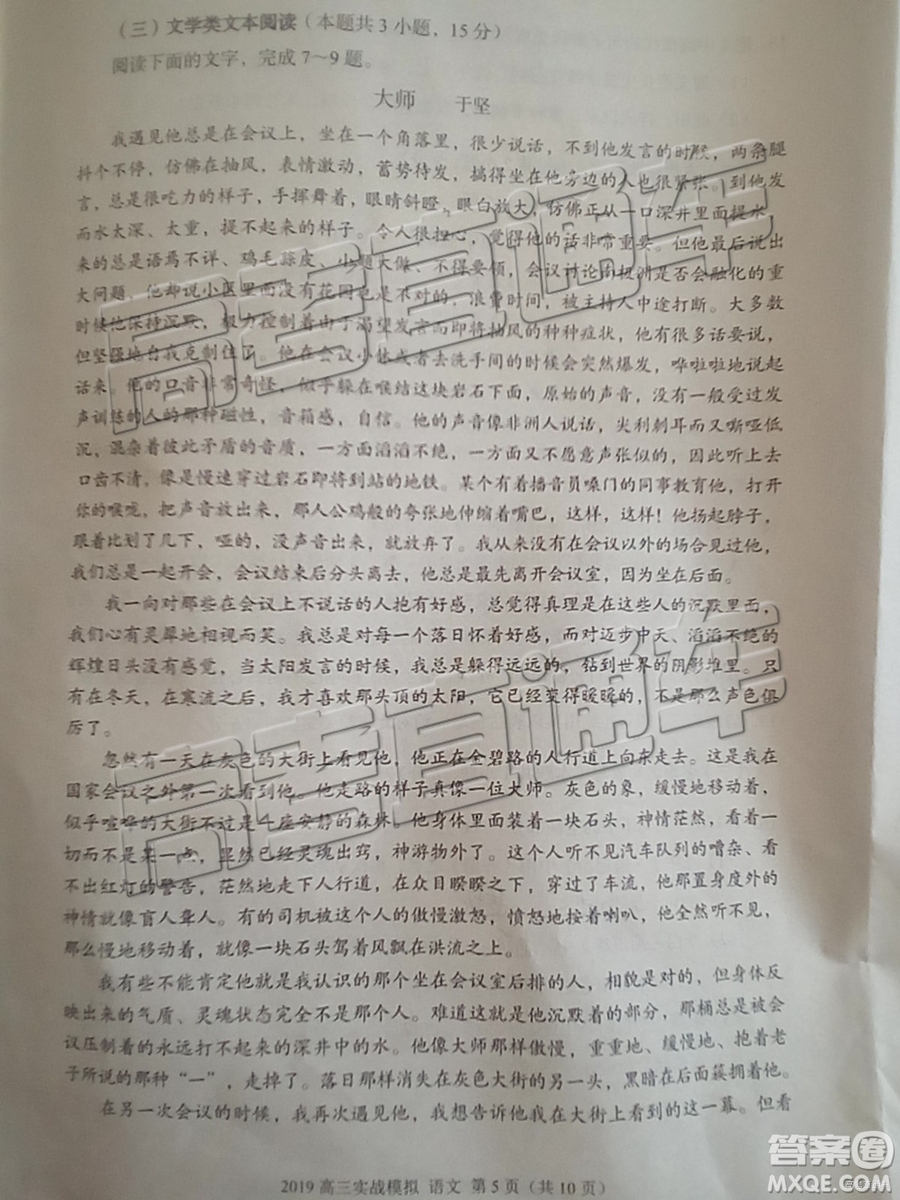 （三）文学类文本阅读（本题共3小题，15分）
阅读下面的文字，完成7～9题。
大师　于坚
我遇见他总是在会议上，坐在一个角落里，很少说话，不到他发言的时候，两条腿
抖个不停，仿佛在抽风，表情激动，蓄势待发，搞得坐在他旁边的人也很紧张。到他发
言，总是很吃力的样子，手挥舞着，眼睛斜瞪，眼白放大，仿佛正从一口深井里面提水，
而水太深、太重，提不起来的样子。令人很担心，觉得他的话非常重要。但他最后说出
来的总是语焉不详、鸡毛蒜皮、小题大做、不得要领，会议讨论南极洲是否会融化的重
大问题，他却说小区里面没有花园也是不行的，浪费时间，被主持人中途打断。大多数
时候他保持沉默，极力控制着由于渴望发言而即将抽风的种种症状，他有很多话要说，
但坚强地自我克制住了。他在会议小休或者去洗手间的时候会突然爆发，哗啦啦地说起
话来。他的口音非常奇怪，似乎躲在喉结这块岩石下面，原始的声音，没有一般受过发
声训练的人的那种磁性，音箱感，自信。他的声音像非洲人说话，尖利刺耳而又嘶哑低
沉，混杂着彼此矛盾的音质，一方面滔滔不绝，一方面又不愿意声张似的，因此听上去
口齿不清，像是慢速穿过岩石即将到站的地铁。某个有着播音员嗓门的同事教育他，打开
你的喉咙，把声音放出来，那人公鸡般的夸张地伸缩着嘴巴，这样，这样！他扬起脖子，
跟着比划了几下，哑的，没声音出来，就放弃了。我从来没有在会议以外的场合见过他，
我们总是一起开会，会议结束后分头离去，他总是最先离开会议室，因为坐在后面。
我一向对那些在会议上不说话的人抱有好感，总觉得真理是在这些人的沉默里面，
我们心有灵犀地相视而笑。我对每一个落日怀着好感，而对迈步中天、滔滔不绝的
辉煌日头没有感觉，当太阳发言的时候，我总是躲得远远的，钻到世界的阴影堆里。只
有在冬天，在寒流之后，我才喜欢那头顶的太阳，它已经变得暖暖的，不是那么声色俱
厉了。
忽然有一天在灰色的大街上看见他，他正在金碧路的人行道上向东走去。这是我在
国家会议之外第一次看到他，他走路的样子真像一位大师。灰色的象，缓慢地移动着，
似乎喧哗的大街不过是一座安静的森林。他身体里面装着一块石头，神情茫然，看着一
切而不是某一点，显然已经灵魂出窍，神游物外了。这个人听不见汽车队列的嘈杂、看
不出红灯的警告，茫然地走下人行道，在众目睽睽之下，穿过了车流，他那置身度外的
神情就像盲人聋人。有的司机被这个人的傲慢激怒，愤怒地按着喇叭，他全然听不见，
那么慢地移动着，就像一块石头驾着风飘在洪流之上。
我有些不能肯定他就是我认识的那个坐在会议室后排的人，相貌是对的，但身体反
映出来的气质、灵魂状态完全不是那个人。难道这就是他沉默着的部分，那桶总是被会
议压制着的永远打不起来的深井中的水。他像大师那样傲慢，重重地、缓慢地、抱着老
子所说的那种“一”，走掉了。落日那样消失在灰色大街的另一头，黑暗在后面簇拥着他。
在另一次会议的时候，我再次遇见他，我想告诉他我在大街上看到的这一幕。但看
2019高三实战模拟 语文 第5页（共10页）
高考直通车
高考直通车
答案圈
MXQE.COM